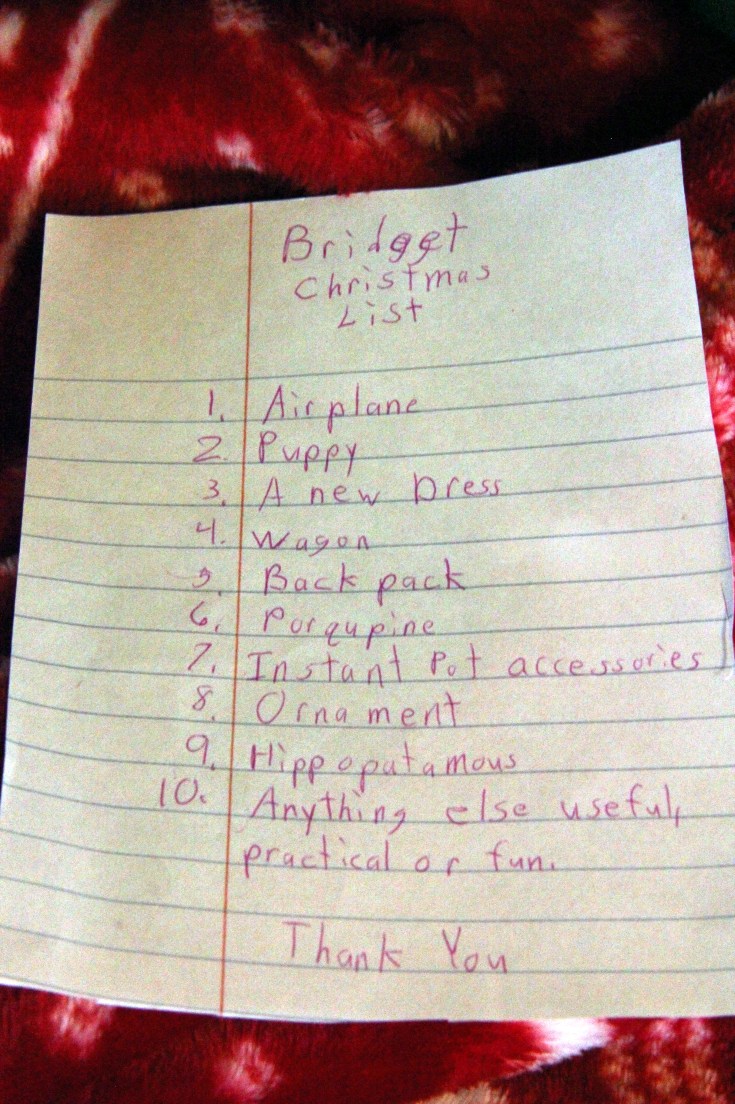 Bridget
Christmas
List
1. Airplane
2. Puppy
3. A new Dress
4. Wagon
5. Back pack
6. Porqupine
7. Instant Pot accessories
8. Ornament
9. Hippoputamous
10. Anything else useful,
practical or fun.
Thank You